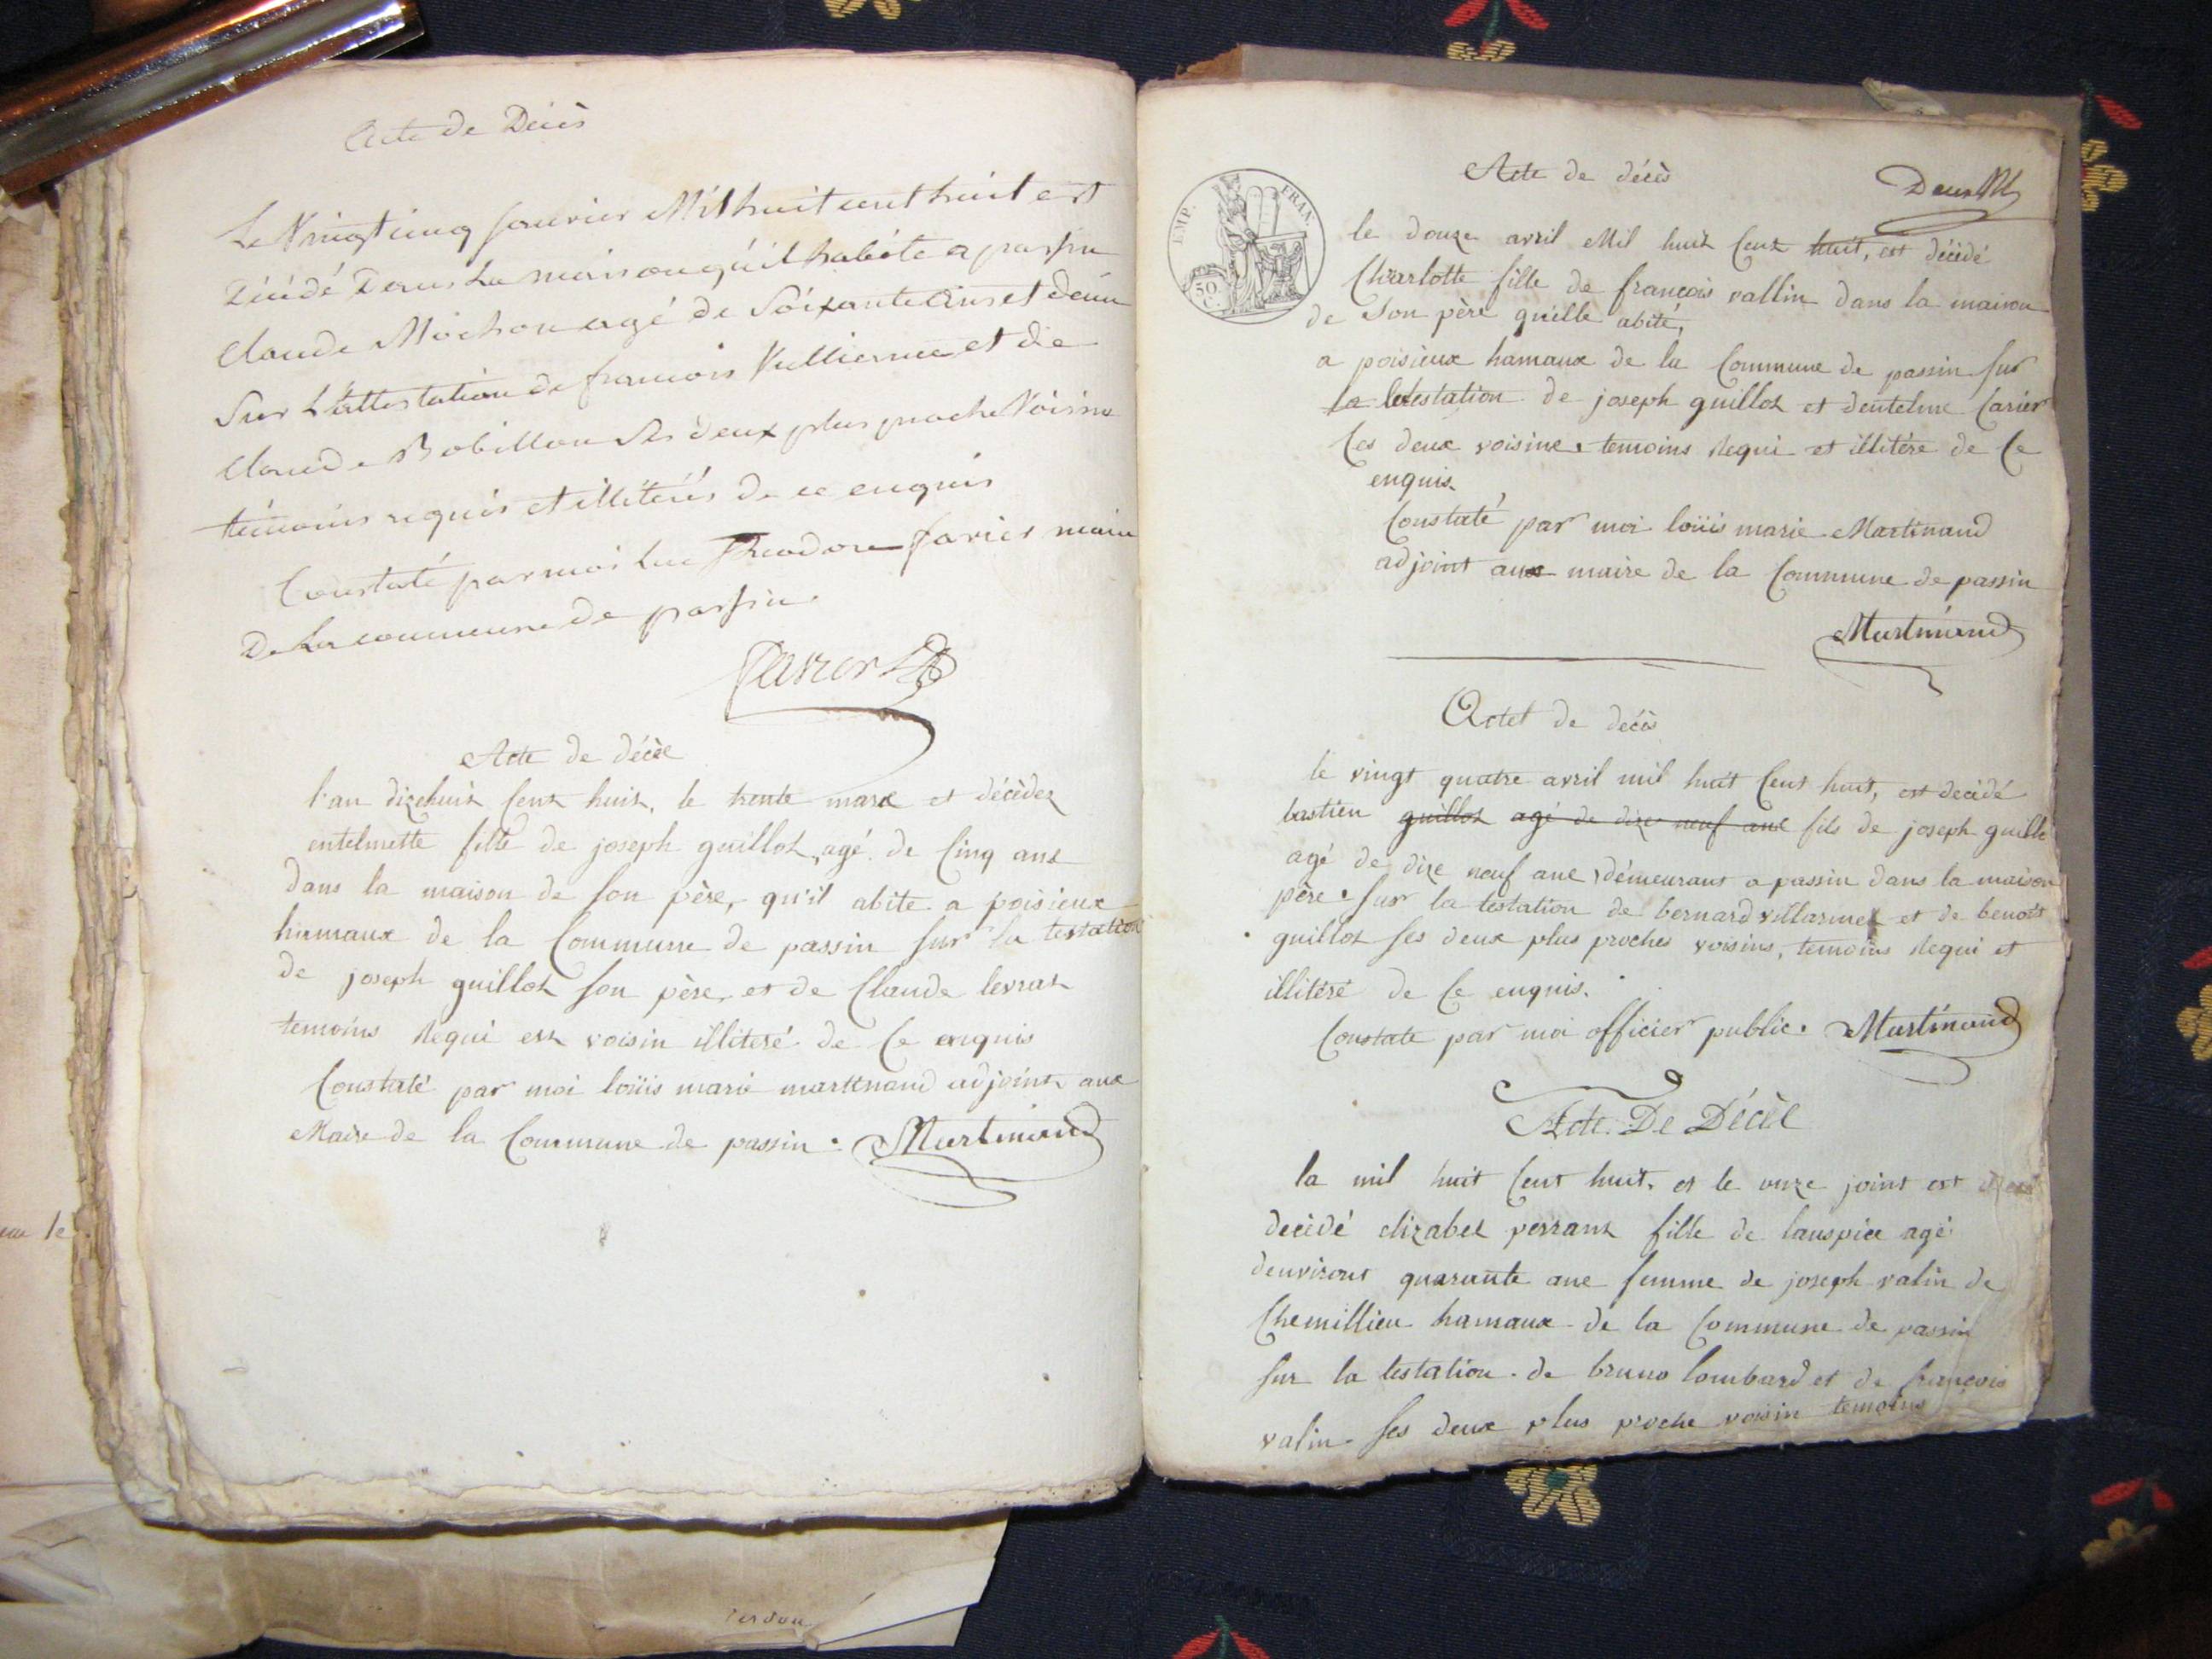 Acte de Décès
Le Vingt cinq Janvier Mil huit cent huit est
Décédé Dans La maison qu'il habite a passin
Claude Mochon agé de Soixante Ans et demi
Sur L'attestation de francois Vullierme et de
Claude Bobillon Ses deux plus proche Voisins
témoins requis et illiterés de ce enquis
Constaté par moi Luc Théodore favier maire
De La commune de passin.
Acte de décèe
l'an dizehuit Cent huit, le trente mars et décèdez
entelmette fille de joseph guillot, agé de Cinq ans
dans la maison de son père, qu'il abite a poisieux
hamaux de la Commune de passin sur la testation
de joseph guillot son père, et de Claude levrat
temoins Requi est voisin illiteré de Ce enquis
Constaté par moi loüis marie martinand adjoint aux
Maire de la Commune de passin. Martinand
EMP. FRAN.
50 C.
Acte de décès
le douze avril Mil huit Cent huit, est décédé
Charlotte fille de françois vallin dans la maison
de Son père quelle abite,
a poisieux hamaux de la Commune de passin sur
la letestation de joseph guillot et dentelme Carier
Ces deux voisine temoins Requi et illitére de Ce
enquis.
Constaté par moi loüis marie Martinand
adjoint aux maire de la Commune de passin
Martinand
Actet de decès
le vingt quatre avril mil huit Cent huit, est decédé
bastien guillot agé de dize neuf ans fils de joseph guillot
agé de dize neuf ane, démeurant a passin dans la maison
père. sur la testation de bernard villarmet et de benoit
guillot ses deux plus proches voisins, temoins Requi et
illitéré de Ce enquis.
Constate par moi officier public. Martinand
Acte De Décèe
la mil huit Cent huit, et le onze joint est
decèdé elizabet perrant fille de lauspice agé
denvirons quarante ane femme de joseph valin de
Chemillieu hamaux de la Commune de passin
sur la testation de bruno lombard et de françois
valin ses deux plus proche voisin temoins